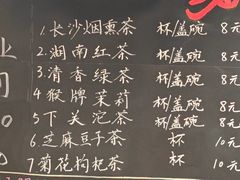 1.长沙烟熏茶 杯/盖碗 8元
2.湖南红茶 杯/盖碗 8元
3.清香绿茶 杯/盖碗 8元
4.猴牌茉莉 杯/盖碗 8元
5.下关沱茶 杯/盖碗 8元
6.芝麻豆子茶 杯 10元
7.菊花枸杞茶 杯 10元